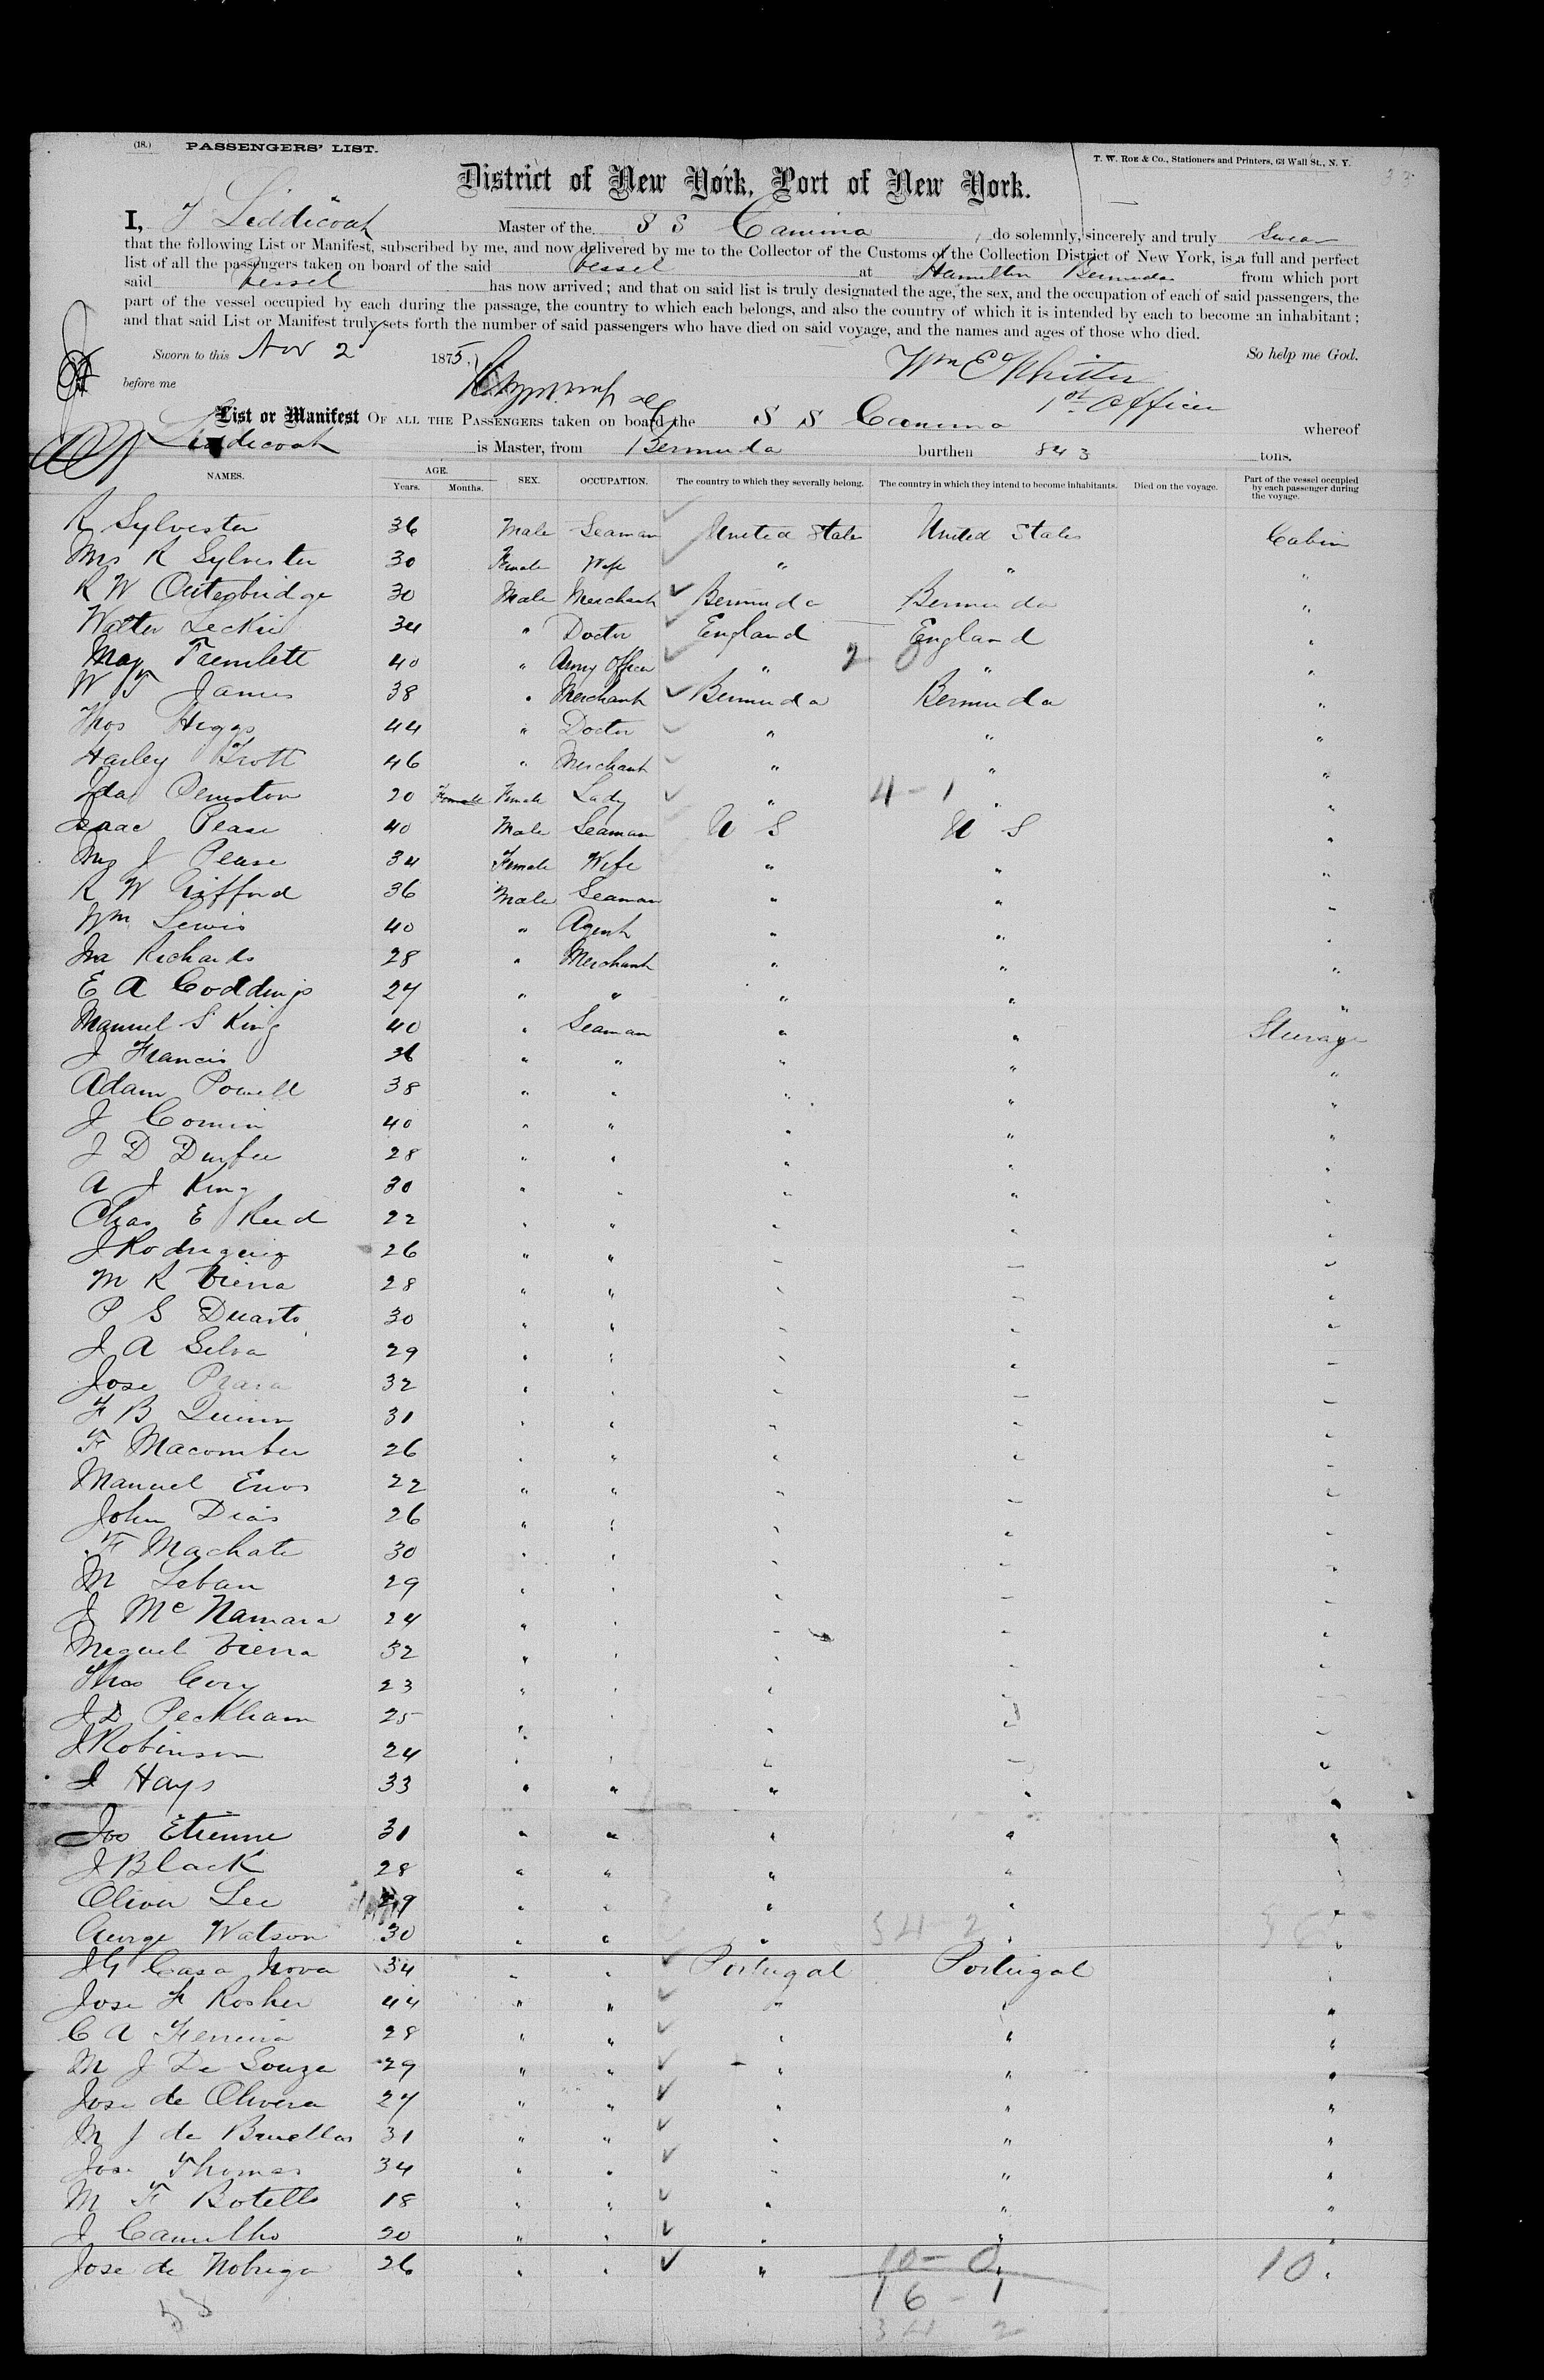 (18.) PASSENGERS' LIST.
T. W. ROE & Co., Stationers and Printers, 63 Wall St., N. Y.
District of New York, Port of New York.
I, J Liddicoat Master of the S S Canima do solemnly, sincerely and truly Swear
that the following List or Manifest, subscribed by me, and now delivered by me to the Collector of the Customs of the Collection District of New York, is a full and perfect
list of all the passengers taken on board of the said Vessel at Hamilton Bermuda from which port
said Vessel has now arrived; and that on said list is truly designated the age, the sex, and the occupation of each of said passengers, the
part of the vessel occupied by each during the passage, the country to which each belongs, and also the country of which it is intended by each to become an inhabitant;
and that said List or Manifest truly sets forth the number of said passengers who have died on said voyage, and the names and ages of those who died.
Sworn to this Nov 2 1875. So help me God.
before me Wm E
1st Officer
List or Manifest OF ALL THE PASSENGERS taken on board the S S Canima whereof
Liddicoat is Master, from Bermuda burthen 843 tons.
NAMES. AGE. Years. Months. SEX. OCCUPATION. The country to which they severally belong. The country in which they intend to become inhabitants. Died on the voyage. Part of the vessel occupied by each passenger during the voyage.
R Sylvester 36 Male Seaman United States United States Cabin
Mrs R Sylvester 30 Female Wife " " "
R W Outerbridge 30 Male Merchant Bermuda Bermuda "
Walter Leckie 34 " Doctor England England "
Maj Tremlett 40 " Army Officer " 2 " "
W T James 38 " Merchant Bermuda Bermuda "
Thos Higgs 44 " Doctor " " "
Harley Trott 46 " Merchant " " "
Ida Peniston 20 Female Female Lady " 4-1 " "
Isaac Pease 40 Male Seaman U S U S "
Mrs J Pease 34 Female Wife " " "
R W Gifford 36 Male Seaman " " "
Wm Lewis 40 " Agent " " "
Ira Richards 28 " Merchant " " "
E A Coddings 27 " " " " "
Manuel S King 40 " Seaman " " Steerage
J Francis 36 " " " " "
Adam Powell 38 " " " " "
J Comin 40 " " " " "
J D Durfee 28 " " " " "
A J King 30 " " " " "
Chas E Reed 22 " " " " "
J Rodriguez 26 " " " " "
M R Viera 28 " " " " "
P S Duarto 30 " " " " "
J A Silva 29 " " " " "
Jose 32 " " " " "
F B Quinn 31 " " " " "
F Macomber 26 " " " " "
Manuel Enos 22 " " " " "
John Dias 26 " " " " "
F Machate 30 " " " " "
M Leban 29 " " " " "
J McNamara 24 " " " " "
Miguel Viera 32 " " " " "
Thos Cory 23 " " " " "
J D Peckham 25 " " " " "
J Robinson 24 " " " " "
J Hays 33 " " " " "
Jos Etienne 31 " " " " "
J Black 28 " " " " "
Oliver Lee 29 " " " " "
George Watson 30 " " " 34 2 " "
J G Casa Nova 34 " " Portugal Portugal "
Jose F Rosher 44 " " " " "
C A Ferreira 28 " " " " "
M J De Souza 29 " " " " "
Jose de Olivera 27 " " " " "
M J de Bruellas 31 " " " " "
Jose Thomas 34 " " " " "
M F Botello 18 " " " " "
J Camilho 20 " " " " "
Jose de Nobriga 26 " " " 10-0 " 10 "
16-1
34 2